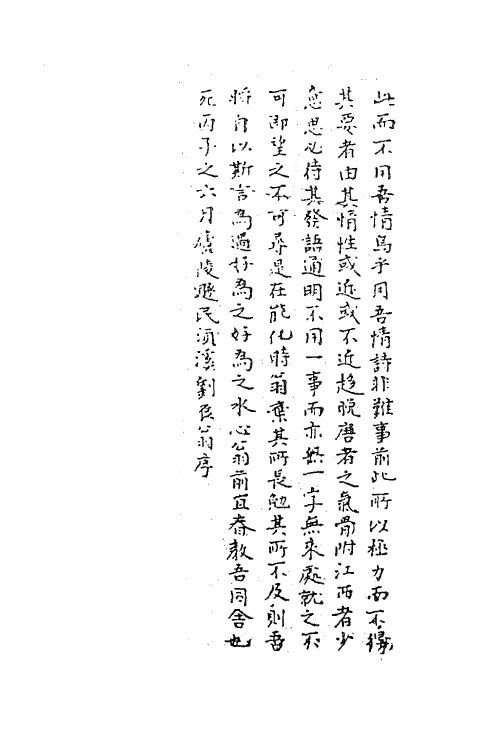 此而不用吾情烏乎用吾情詩非難事前此所以極力而不得
其要者由其情性或近或不近趍晩唐者乏氣骨附江西者少
意思必待其發語通明不用一事而亦無一字無來處就之不
可即望之不可尋是在能化時翁棄其所長勉其所不及則吾
將自以斯言為過好為之好為之水心翁前宜春教吾同舎也
死丙子之六月廬陵遯民須溪劉辰翁序